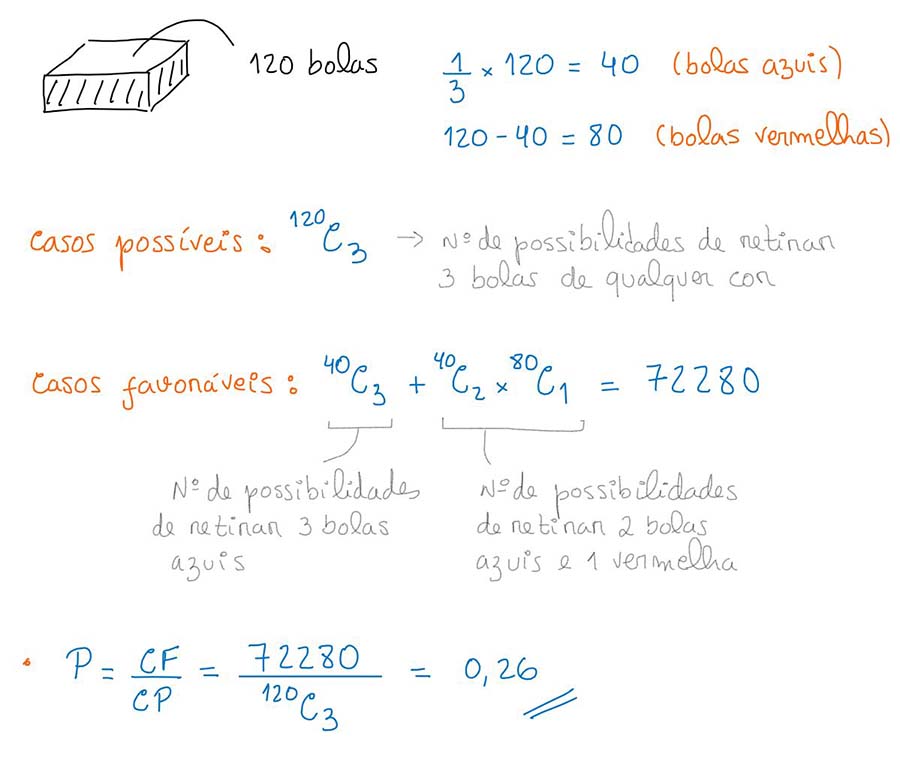 120 bolas
1/3 × 120 = 40 (bolas azuis)
120 - 40 = 80 (bolas vermelhas)
Casos possíveis: ¹²⁰C₃ → Nº de possibilidades de retirar
3 bolas de qualquer cor
Casos favoráveis: ⁴⁰C₃ + ⁴⁰C₂ × ⁸⁰C₁ = 72280
Nº de possibilidades
de retirar 3 bolas
azuis
Nº de possibilidades
de retirar 2 bolas
azuis e 1 vermelha
• P = CF/CP = 72280/¹²⁰C₃ = 0,26